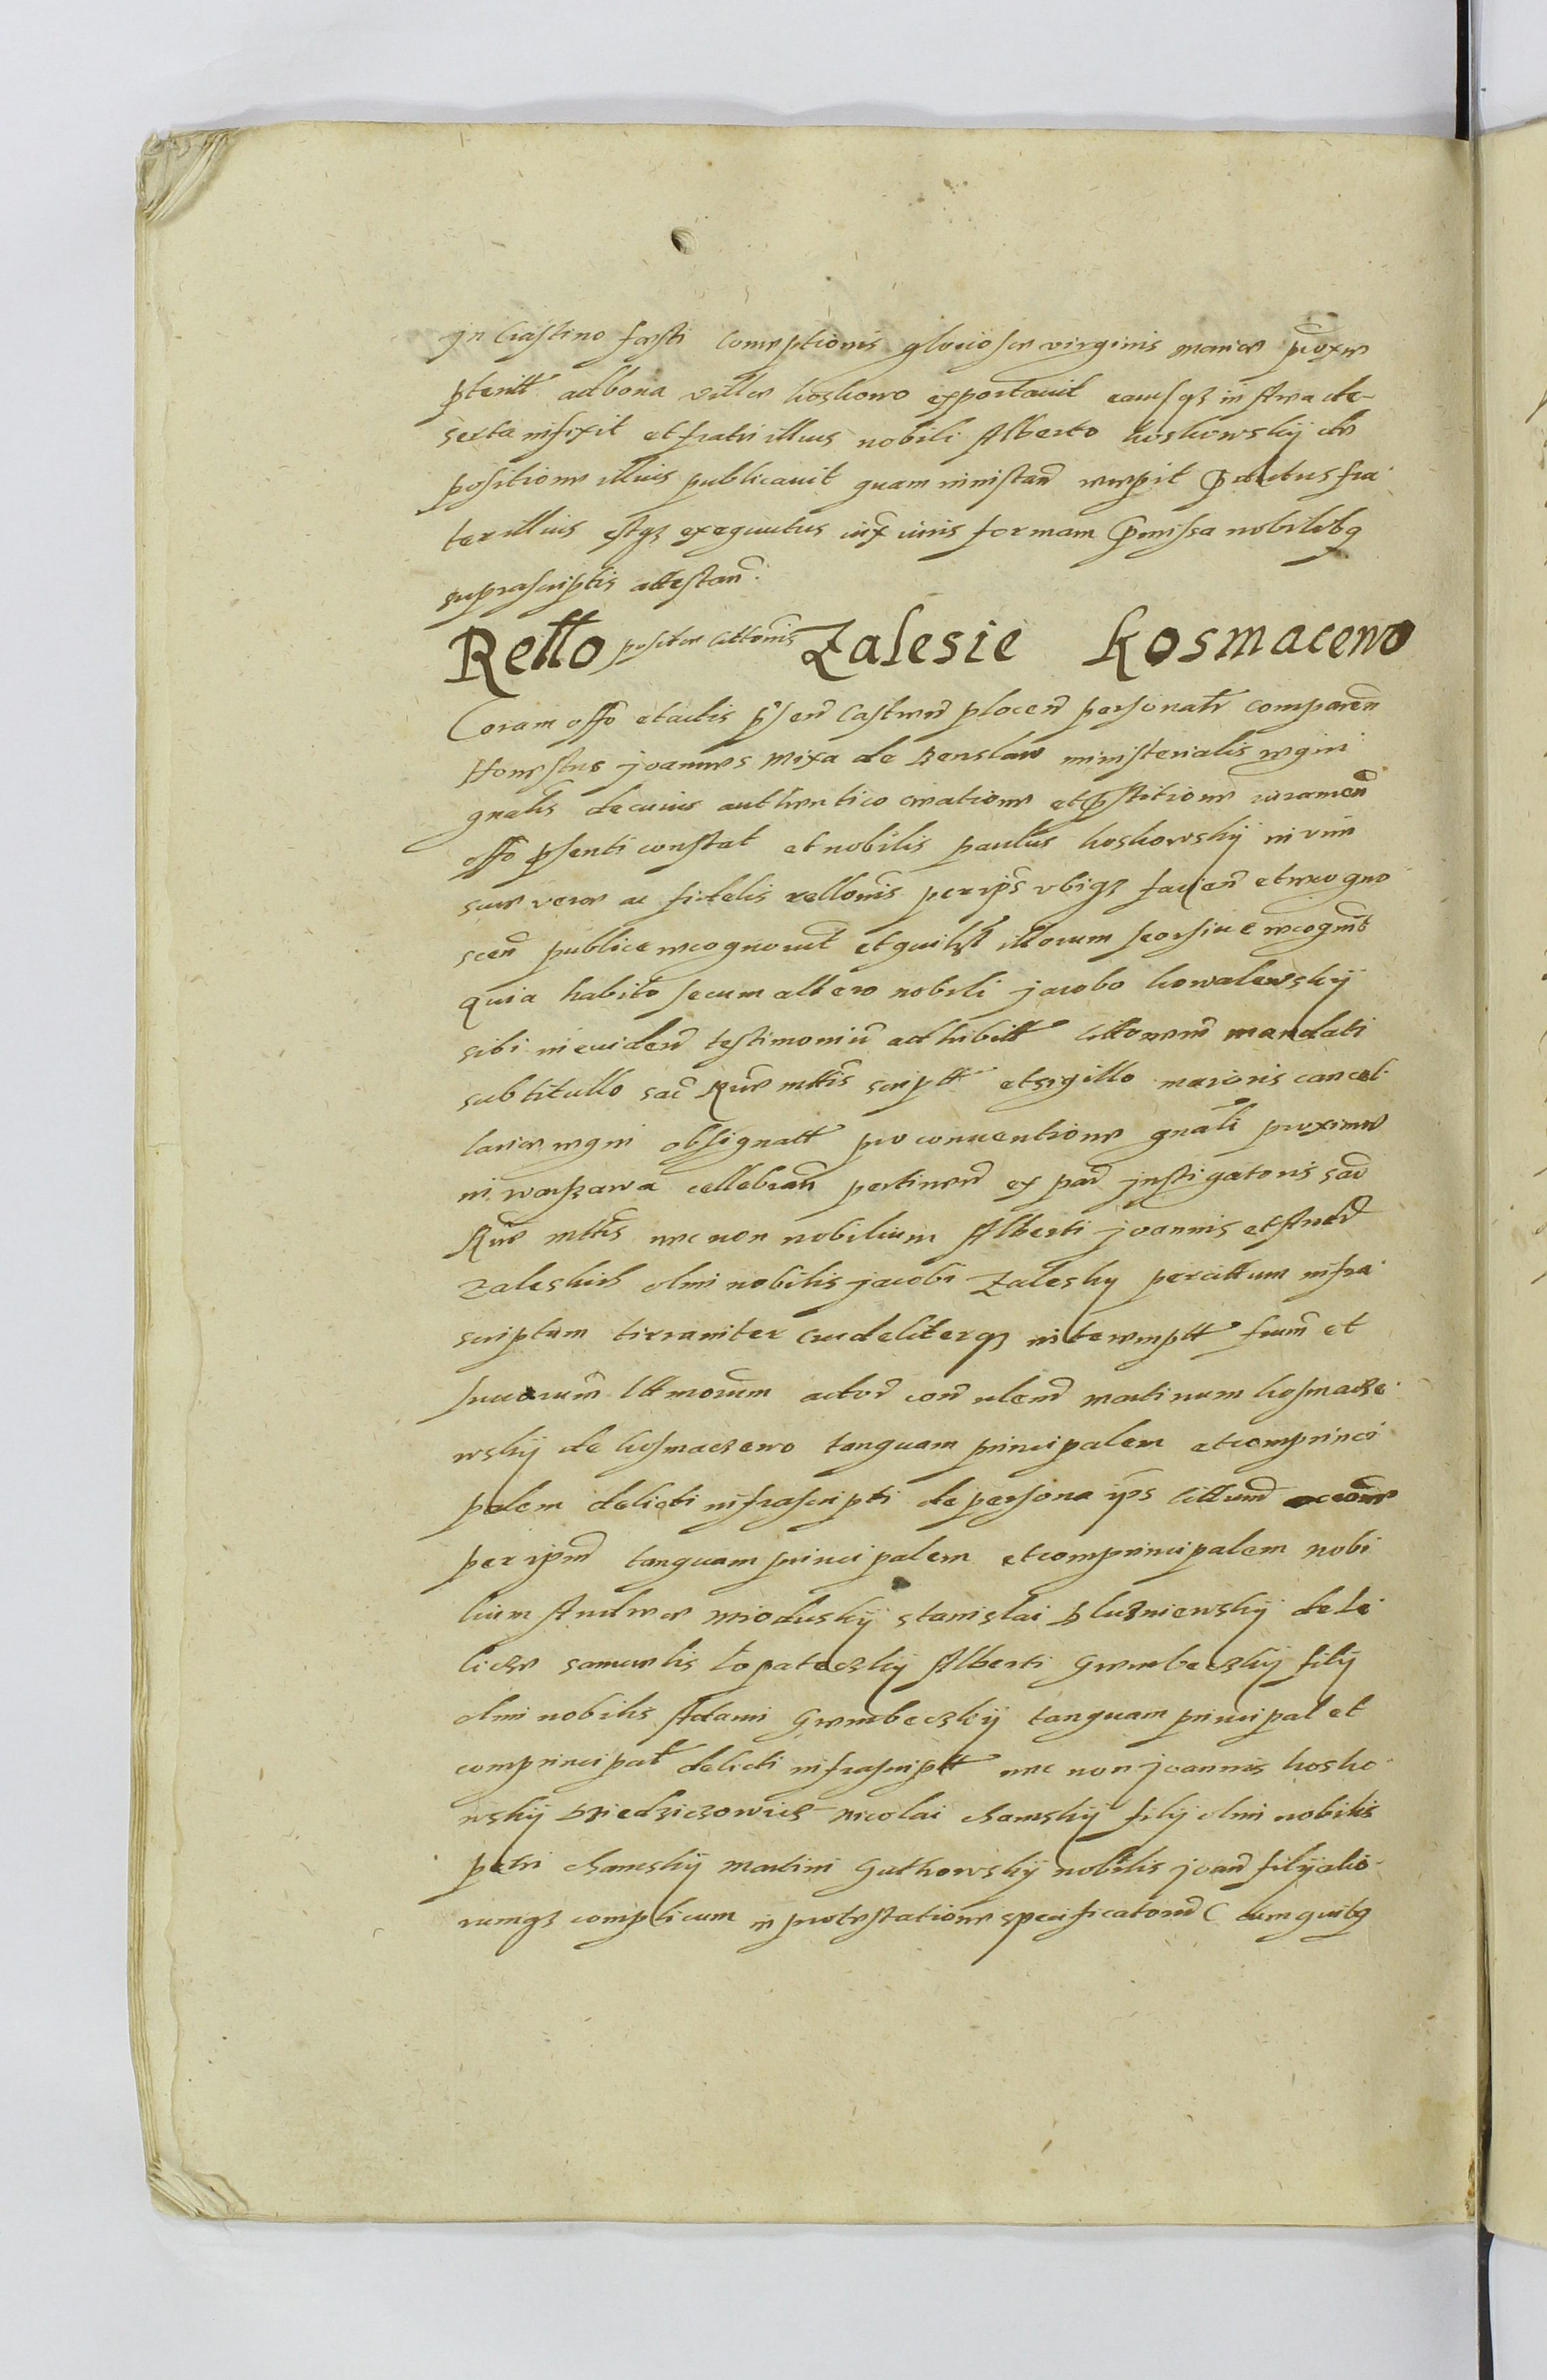 in Crastino festi Conceptionis gloriose virginis marie proxe
pterit ad bona ville koskowo exportavit eamqz in area de-
serta infixit et fratri illius nobili Alberto koskowskij de
positione illius publicavit quam in instan recepit pdictus fra
ter illius estqz exequutus iux iuris formam pmissa nobilibq
suprascriptis attestan.
Rello posite littonis Zalesie Kosmacewo
Coram offo et actis psen Castren plocen personalr comparen
Honestus joannes Mixa de Renslaw ministerialis regni
gnalis de cuius authentico creatione et pstitione iuramen
offo psenti constat et nobilis paulus koskowskij in vim
sue vere ac fidelis rellonis per ips ubiqz facien et recogno
scen publice recognovit et quilibet illorum seorsive recognit
quia habito secum altero nobili jacobo kowalewskij
sibi in eviden testimoniu adhibitt litterarum mandati
sub titullo sac Rie mttis script et sigillo maioris cancel
larie regni obsignatt pro conventione gnali proxime
in warszawa cellebran pertinen ex par jnstigatoris sac
Rie mttis nec non nobilium Alberti joannis et And
Zaleskich olim nobilis jacobi Zalesky per cittum infra
scriptum tirraniter crudeliterqz interemptt frum et
suorum lttmorum actor con ulem martinum kosmacze
wskij de kosmaczewo tanquam principalem et comprinci
palem delicti infrascripti de persona ips cittum
per ipm tanquam principalem et comprincipalem nobi
lium Andree mioduskij stanislai Bluzniewskij de Le
licze samuelis lopateczkij Alberti Grembeczkij filij
olim nobilis Adami Grembeczkij tanquam principal et
comprincipal delicti infrascriptt nec non joannis kosko
wskij Dziedziczowicz nicolai chamskij filij olim nobilis
petri chamskij martini Guthowskij nobilis joan filij alio
rumqz complicum in protestatione specificator cum quibq